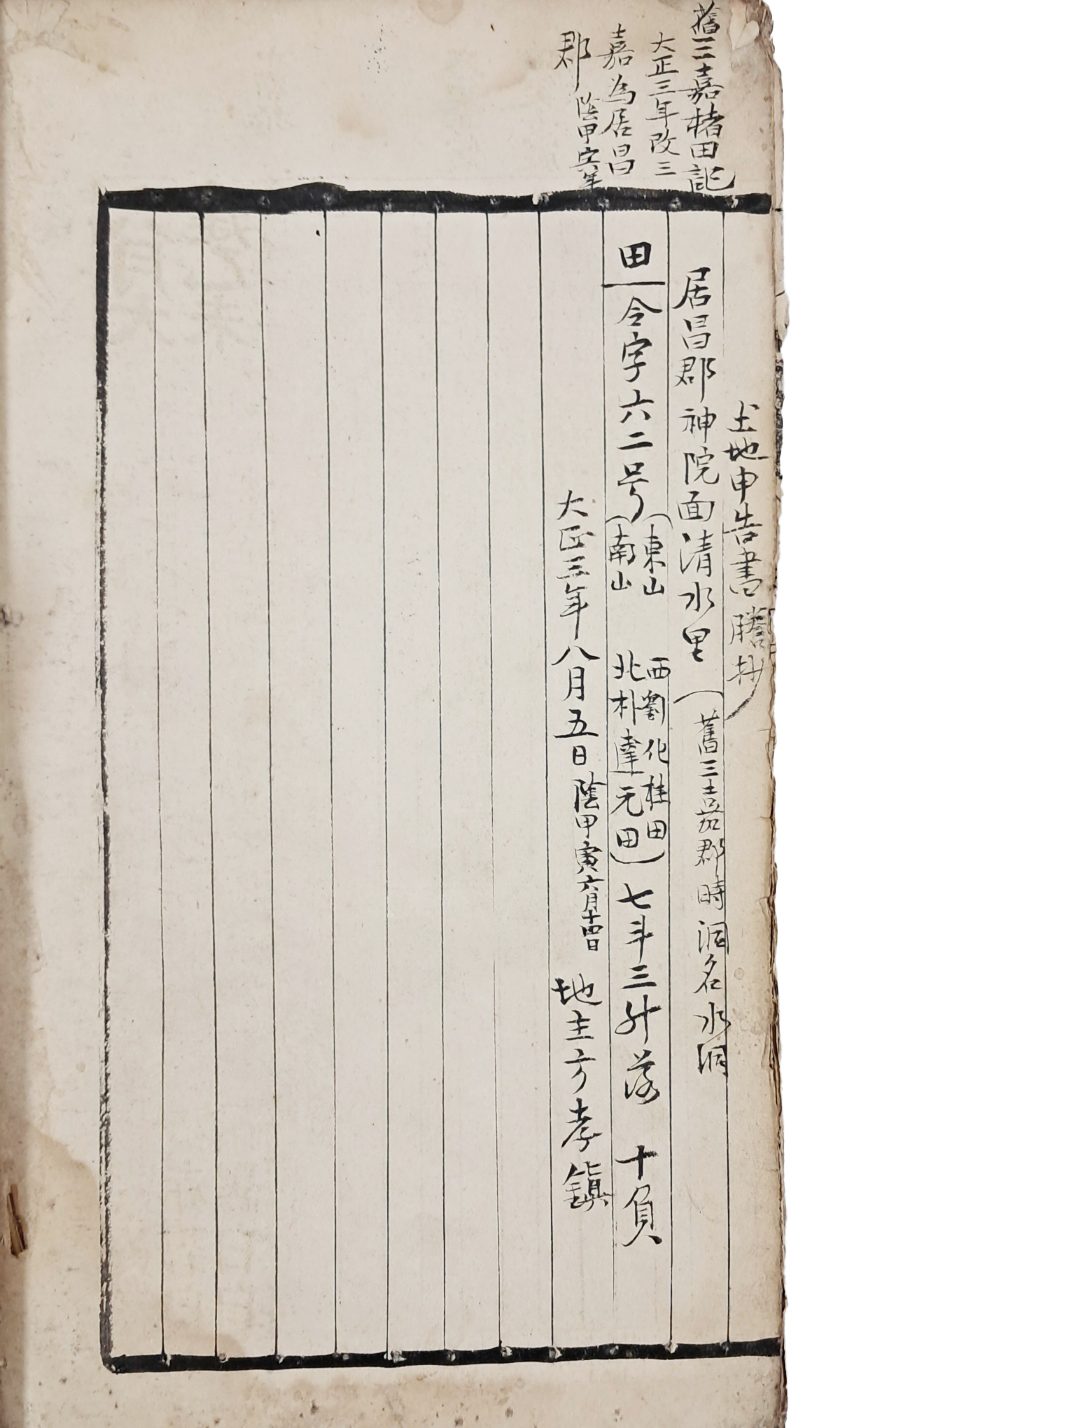 舊三嘉楮田記
大正三年改三
嘉為居昌
郡 陰甲寅年
土地申告書謄抄
居昌郡神院面清水里(舊三嘉郡時洞名水洞)
田一令字六二号(東山 西劉化桂田
南山 北朴達元田)七斗三升落 十負
大正三年八月五日陰甲寅六月十四日 地主方孝鎮